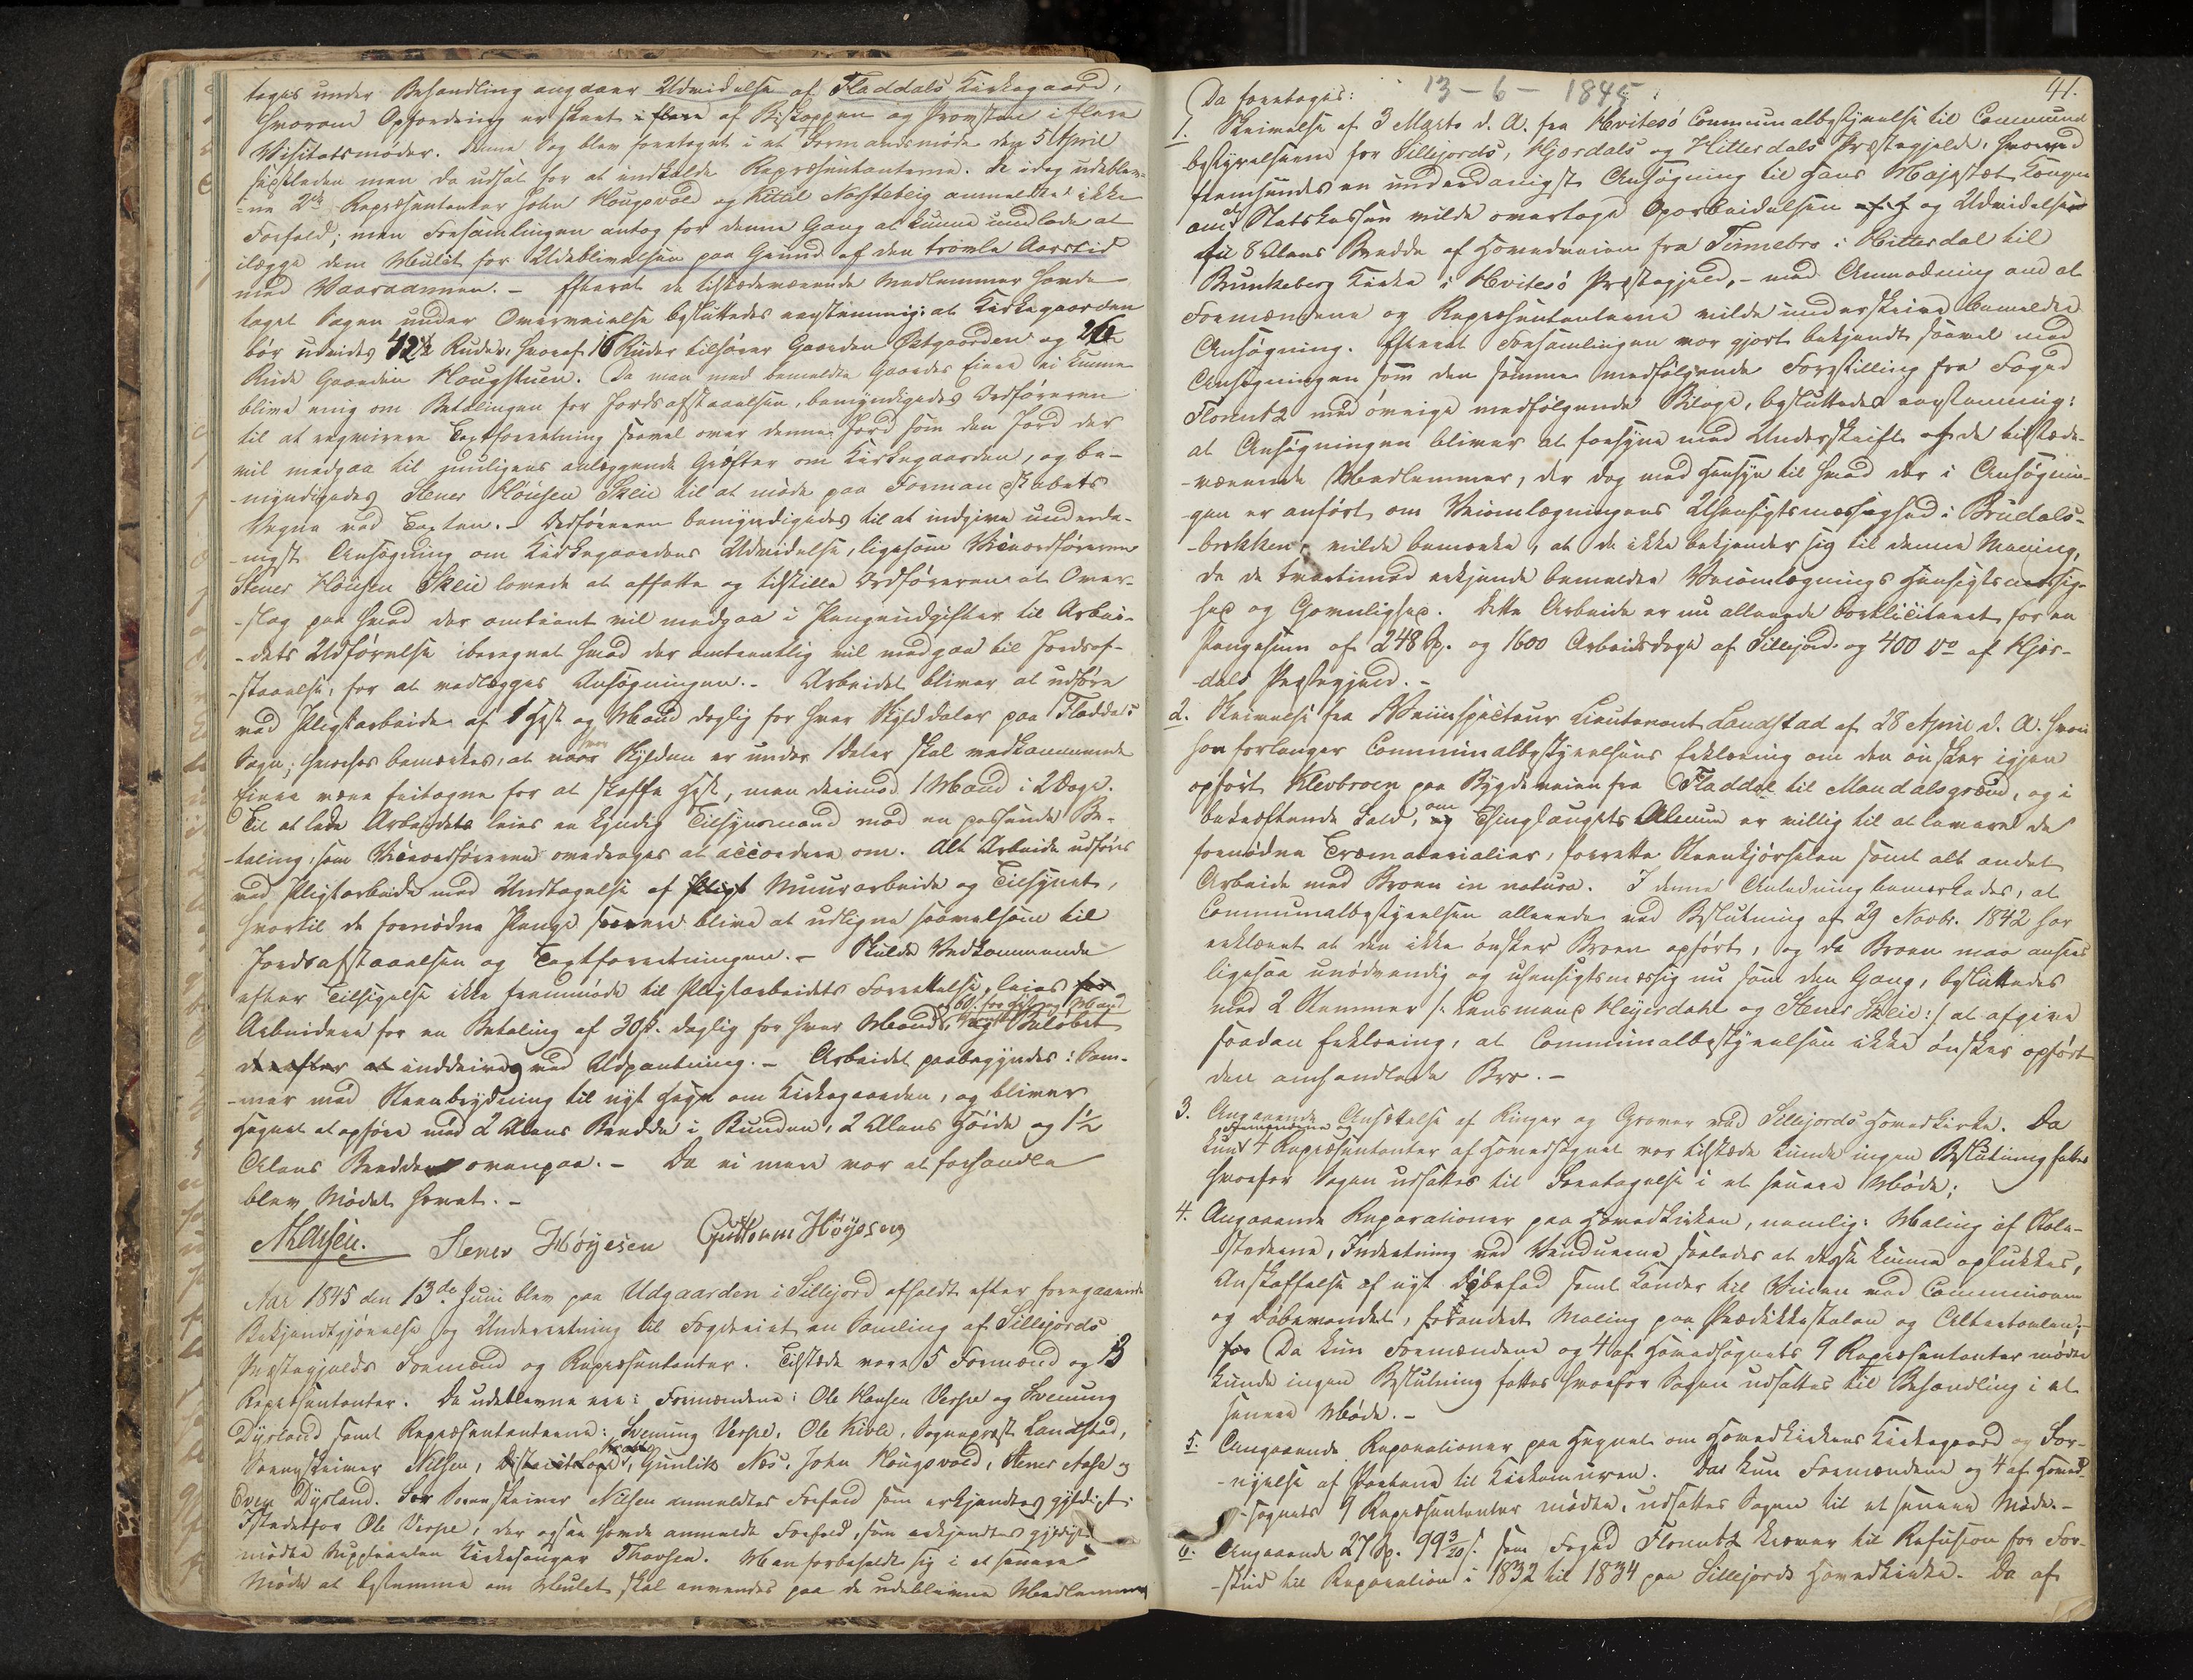 tages under Behandling angaaer Udvidelse af Fladdals Kirkegaard,
hvorom Opfordring er skeet i flere af Biskoppen og Provsten i flere
Visitatsmøder. Denne Sag blev foretaget i et Formandsmøde den 5 April
sidstleden men da udsat for at indkalde Repræsentanterne. De idag udeblev-
ne 2de Repræsentanter John Hougsvold og Kittil anmeldte ikke
Forfald; men Forsamlingen antog for denne Gang at kunne undlade at
ilægge dem Mulct for Udeblivelsen paa Grund af den travle Aarstid
med Vaaraannen. – Efterat de tilstædeværende Medlemmer havde
taget Sagen under Overveielse besluttedes eenstemmig: at Kirkegaarden
bør udvides Ruder, hvoraf 16 Ruder tilhører Gaarden Østgaarden og
Rude Gaarden Haugstuen. Da man med bemeldte Gaardes Eiere ei kunne
blive enig om Betalingen for Jordafstaaelsen, bemyndigedes Ordføreren
til at reqvirere Taxtforretning saavel over denne Jord som den Jord der
vil medgaa til muligens anlæggende Grøfter om Kirkegaarden, og be-
-myndigedes Stener Høiesen Skeie til at møde paa Formandskabets
Vegne ved Taxten. – Ordføreren bemyndigedes til at indgive underda-
-nigst Ansøgning om Kirkegaardens Udvidelse, ligesom Viceordføreren
Stener Høiesen Skeie lovede at affatte og tilstille Ordføreren et Over-
-slag paa hvad der omtrent vil medgaa i Pengeudgifter til Arbei-
-dets Udførelse iberegnet hvad der omtrentlig vil medgaa til Jordaf-
-staaelse, for at vedlægges Ansøgningen. – Arbeidet bliver at udføre
ved Pligtarbeide af 1 Hest og Mand daglig for hver Skylddaler paa Fladdals
Sogn; hvorhos bemærkes, at naar Skylden er under 1 Daler skal vedkommende
Eiere være fritagne for at skaffe Hest, men derimod 1 Mand i 2 Dage.
Til at lede Arbeidet leies en kyndig Tilsynsmand mod en passende Be-
-taling, som Viceordføreren overdrages at accordere om. Alt Arbeide udføres
ved Pligtarbeide med Undtagelse af Pligt Muurarbeide og Tilsynet,
hvortil de fornødne Penge blive at udligne saavelsom til
Jordafstaaelsen og Taxtforretningen. – Skulde Vedkommende
efter Tilsigelse ikke fremmøde til Pligtarbeidets Forrettelse, leies for
60. for Hest og Mand
Arbeidere for en Betaling af 30 s. daglig for hver Mand, Beløbet
derefter at inddrives ved Udpantning. – Arbeidet paabegyndes i Som-
-mer med Steenbrydning til nyt Hegn om Kirkegaarden, og bliver
Hegnet at opføre med 2 Alens Bredde i Bunden, 2 Alens Høide og 1½
Alens Bredde ovenpaa. – Da ei mere var at forhandle
blev Mødet hævet. –
Stener Høyesen Guttorm Høyesen
Aar 1845 den 13de Juni blev paa Udgaarden i Sillejord afholdt efter foregaaende
Bekjendtgjørelse og Underretning til Fogderiet en Samling af Sillejords
Præstegjelds Formænd og Repræsentanter. Tilstæde vare 5 Formænd og 13
Repræsentanter. De udeblevne ere: Formændene: Ole Hansen Vespe og Svenung
Dyrland samt Repræsentanterne: Svenung Vespe, Ole Kivle, Sognepræst Landstad,
Sorenskriver Nilsen, Gunlik Næs, John Hougsvold, Stener Aase og
Even Dyrland. For Sorenskriver Nilsen anmeldtes Forfald som erkjendtes gyldigt.
Istedetfor Ole Vespe, der ogsaa havde anmeldt Forfald, som erkjendtes gyldigt
mødte Suppleanten Kirkesanger Thorsen. Man forbeholdt sig i et senere
Møde at bestemme om Mulct skal anvendes paa de udeblevne Medlemmer
13 – 6 – 1845
41.
Da foretoges:
1. Skrivelse af 3 Marts d. A. fra Hvitesø Communalbestyrelse til Communal
bestyrelserne for Sillejords, Hjerdals og Hitterdals Præstegjelde, hvorved
fremsendes en underdanigst Ansøgning til Hans Majestæt Kongen
om Statskassen vilde overtage Oparbeidelsen af og Udvidelsen
til 8 Alens Bredde af Hovedveien fra Tinnebro i Hitterdal til
Brunkeberg Kirke i Hvitesø Præstegjeld, – med Anmodning om at
Formændene og Repræsentanterne vilde underskrive bemeldte
Ansøgning. Efterat Forsamlingen var gjort bekjendt saavel med
Ansøgningen som den samme medfølgende Forestilling fra Foged
Florentz med øvrige medfølgende Bilage, besluttedes eenstemmig:
at Ansøgningen bliver at forsyne med Underskrift af de tilstæde-
-værende Medlemmer, der dog med Hensyn til hvad der i Ansøgnin-
-gen er anført om Veiomlægningens Uhensigtsmæssighed i Brudals-
-brekken, vilde bemærke, at de ikke bekjender sig til denne Mening,
da de tvertimod erkjende bemeldte Veiomlægnings Hensigtsmæssig-
hed og Gavnlighed. Dette Arbeide er nu allerede bortliciteret for en
Pengesum af 248 Sp. og 1600 Arbeidsdage af Sillejord og 400 do af Hjer-
-dals Præstegjeld. –
2. Skrivelse fra Veiinspecteur Lieutenant Landstad af 28 April d. A. hvori
han forlanger Communalbestyrelsens Erklæring om den ønsker igjen
opført Klevbroen paa Bygdeveien fra Fladdal til Mandalsgrænd, og i
bekræftende Fald, om Thinglaugets Almue er villig til at levere de
fornødne Træmaterialier, forrette Steenkjørselen samt alt andet
Arbeide med Broen in natura. I denne Anledning bemærkedes, at
Communalbestyrelsen allerede ved Beslutning af 29 Novbr. 1842 har
erklæret at den ikke ønsker Broen opført, og da Broen maa ansees
ligesaa unødvendig og uhensigtsmæssig nu som den Gang, besluttedes
med 2 Stemmer /: Lensmand Heyerdahl og Stener Skeie :/ at afgive
saadan Erklæring, at Communalbestyrelsen ikke ønsker opført
den omhandlede Bro. –
3. Angaaende Ansættelse af Ringer og Graver ved Sillejords Hovedkirke. Da
Formændene og
kun 4 Repræsentanter af Hovedsognet var tilstæde kunde ingen Beslutning fattes
hvorfor Sagen udsattes til Foretagelse i et senere Møde;
4. Angaaende Reparationer paa Hovedkirken, nemlig: Maling af Stole-
staderne, Indretning ved Vinduerne saaledes at disse kunne oplukkes,
Anskaffelse af nyt Døbefad samt Kander til Vinen ved Communionen
og Døbevandet, forandret Maling paa Prædikestolen og Altertavlen;–
for Da kun Formændene og 4 af Hovedsognets 9 Repræsentanter mødte
kunde ingen Beslutning fattes hvorfor Sagen udsattes til Behandling i et
senere Møde. –
5. Angaaende Reparationer paa Hegnet om Hovedkirkens Kirkegaard og For-
-nyelse af Portene til Kirkemuren. Da kun Formændene og 4 af Hoved-
-sognets 9 Repræsentanter mødte, udsattes Sagen til et senere Møde. –
6. Angaaende 27 Sp. 99 3/20 s. som Foged Florentz kræver til Refusion for For-
-skud til Reparation i 1832 til 1834 paa Sillejords Hovedkirke. Da af